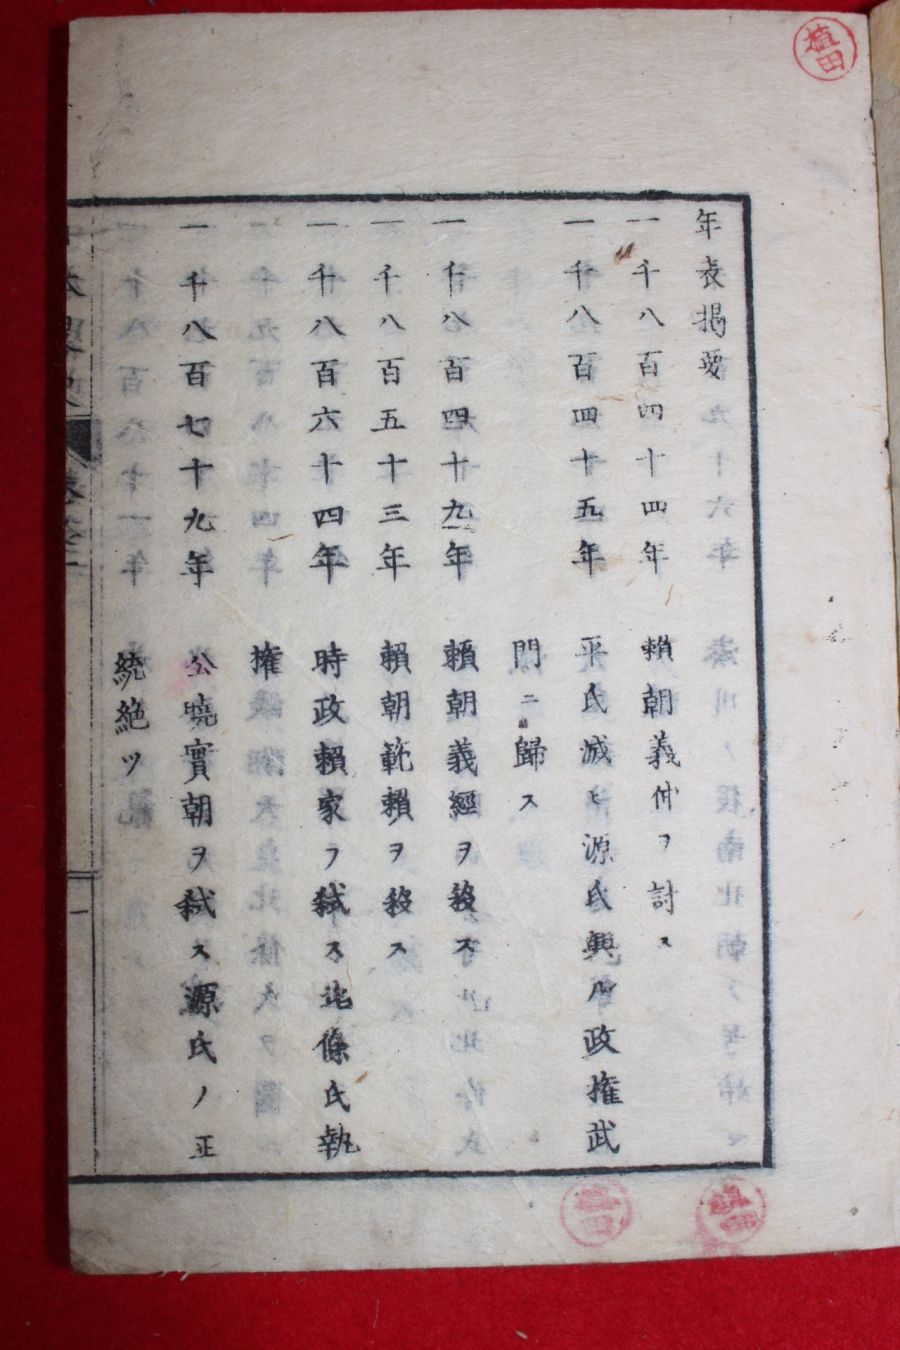 植田
年表掲要
一千八百四十四年 賴朝義仲ヲ討ス
一千八百四十五年 平氏滅ヒ源氏興ル政權武
門ニ歸ス
一千八百四十九年 賴朝義經ヲ殺ス
一千八百五十三年 賴朝範賴ヲ殺ス
一千八百六十四年 時政賴家ヲ弑ス北條氏執
權
一千八百七十九年 公曉實朝ヲ弑ス源氏ノ正
統絶ツ
一